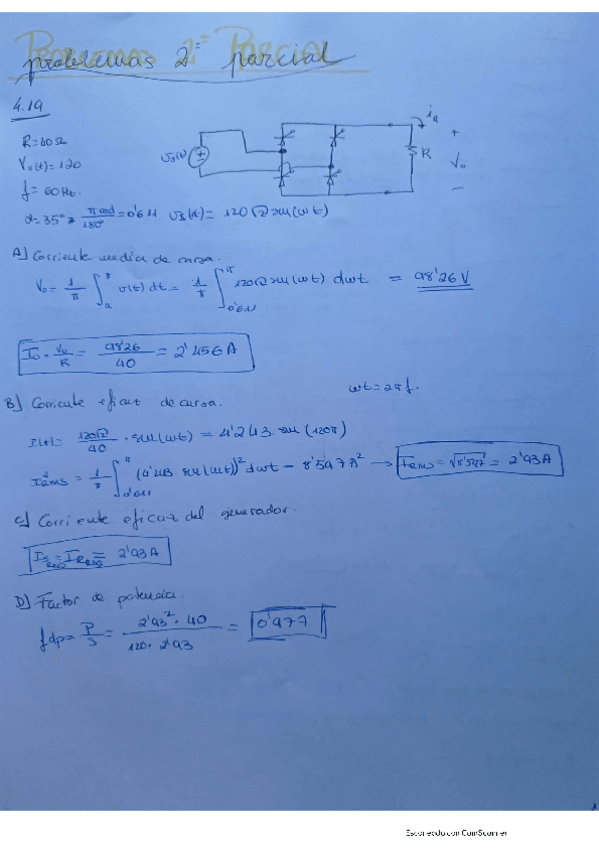 Problemas 2º Parcial
4.19
R=40Ω
Vs(t)=120
f=60Hz.
α=35º · πrad/180º = 0'611 vs(t)= 120√2 sen(wt)
vs(t)
io
+
R
Vo
−
A] Corriente media de carga.
Vo = 1/π ∫ v(t) dt = 1/π ∫ 120√2 sen(wt) dwt = 98'26 V
Io = Vo/R = 98'26/40 = 2'456 A
B] Corriente eficaz de carga.
wt=2πf.
I(t)= 120√2/40 · sen(wt) = 4'243 · sen(120π)
I²RMS = 1/π ∫ (4'243 sen(wt))² dwt = 8'597 A² → IRMS = √8'597 = 2'93 A
C] Corriente eficaz del generador.
IsRMS = IRRMS = 2'93 A
D] Factor de potencia.
fdp = P/S = 2'93² · 40 / 120 · 2'93 = 0'977
Escaneado con CamScanner